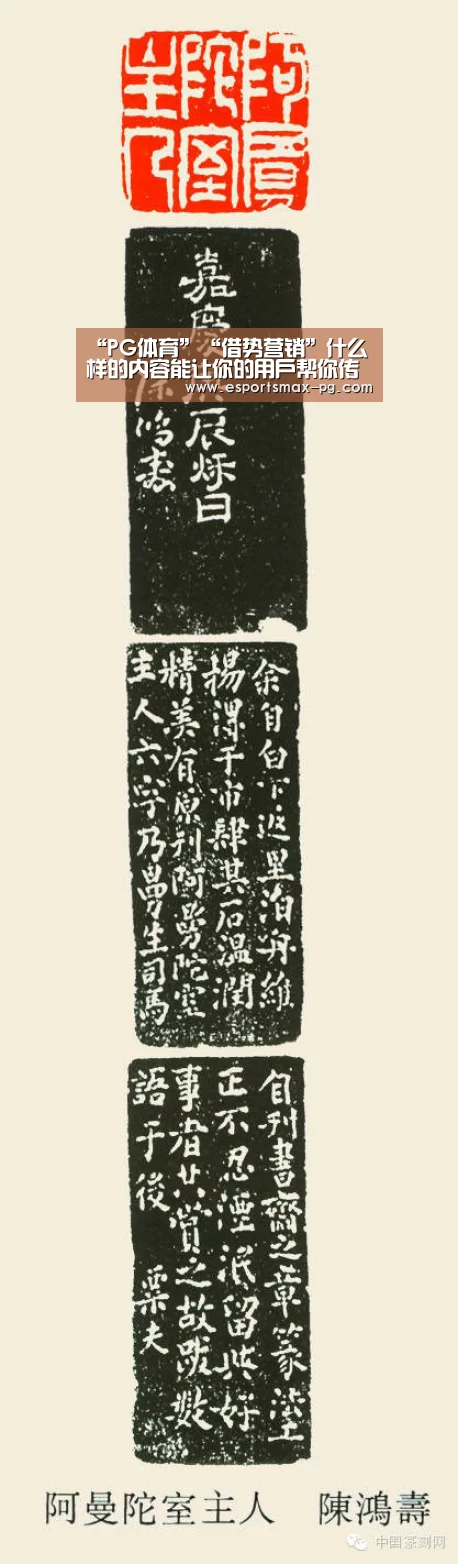 阿曼
陀室
主人
嘉慶辰秋日
鴻壽
“PG体育”“借势营销”什么
样的内容能让你的用户帮你传
www.esportsmax-pg.com
余自白下返里泊舟維
揚得于市肆其石溫潤
精美有原刊阿曼陀室
主人六字乃曼生司馬
自刊書齋之章篆法工
正不忍湮泯留此好
事者共賞之故跋數
語于後 粟夫
阿曼陀室主人 陳鴻壽
中国篆刻网